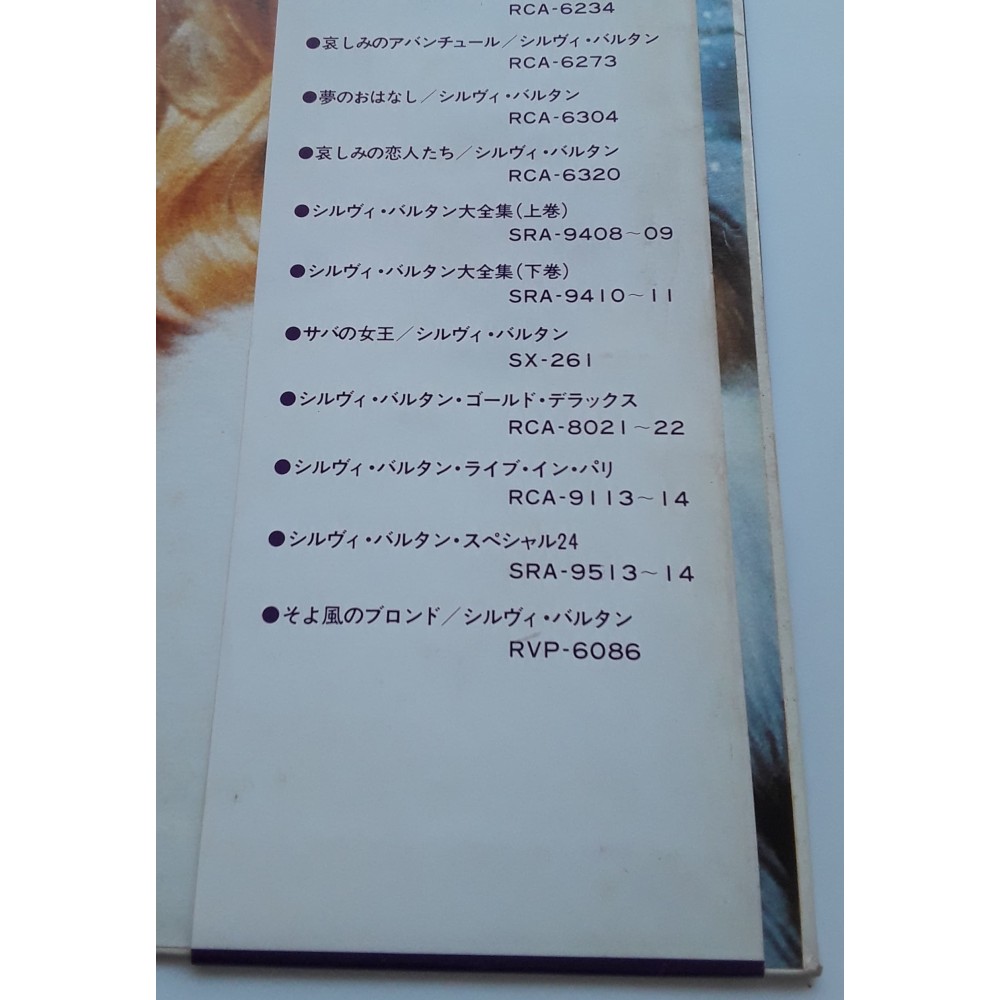 RCA-6234
●哀しみのアバンチュール／シルヴィ・バルタン
RCA-6273
●夢のおはなし／シルヴィ・バルタン
RCA-6304
●哀しみの恋人たち／シルヴィ・バルタン
RCA-6320
●シルヴィ・バルタン大全集(上巻)
SRA-9408～09
●シルヴィ・バルタン大全集(下巻)
SRA-9410～11
●サバの女王／シルヴィ・バルタン
SX-261
●シルヴィ・バルタン・ゴールド・デラックス
RCA-8021～22
●シルヴィ・バルタン・ライブ・イン・パリ
RCA-9113～14
●シルヴィ・バルタン・スペシャル24
SRA-9513～14
●そよ風のブロンド／シルヴィ・バルタン
RVP-6086